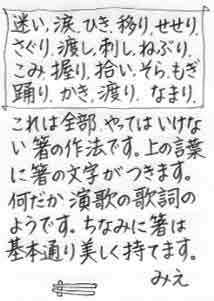 迷い,涙,ひき,移り,せせり,
さぐり,渡し,刺し,ねぶり,
こみ,握り,拾い,そら,もぎ
踊り,かき,渡り,なまり,
これは全部、やってはいけな
い箸の作法です。上の言葉
に箸の文字がつきます。
何だか演歌の歌詞の
ようです。ちなみに箸は
基本通り美しく持てます。
みえ